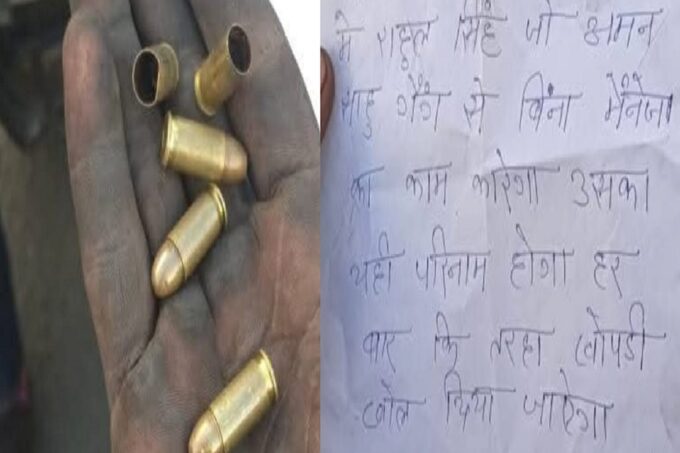 मे राहुल सिंह जो अमन
साहु गैंग से बिना मैनेज
का काम करेगा उसका
यही परिनाम होगा हर
बार कि तरहा खोपडी
खोल दिया जाऐगा